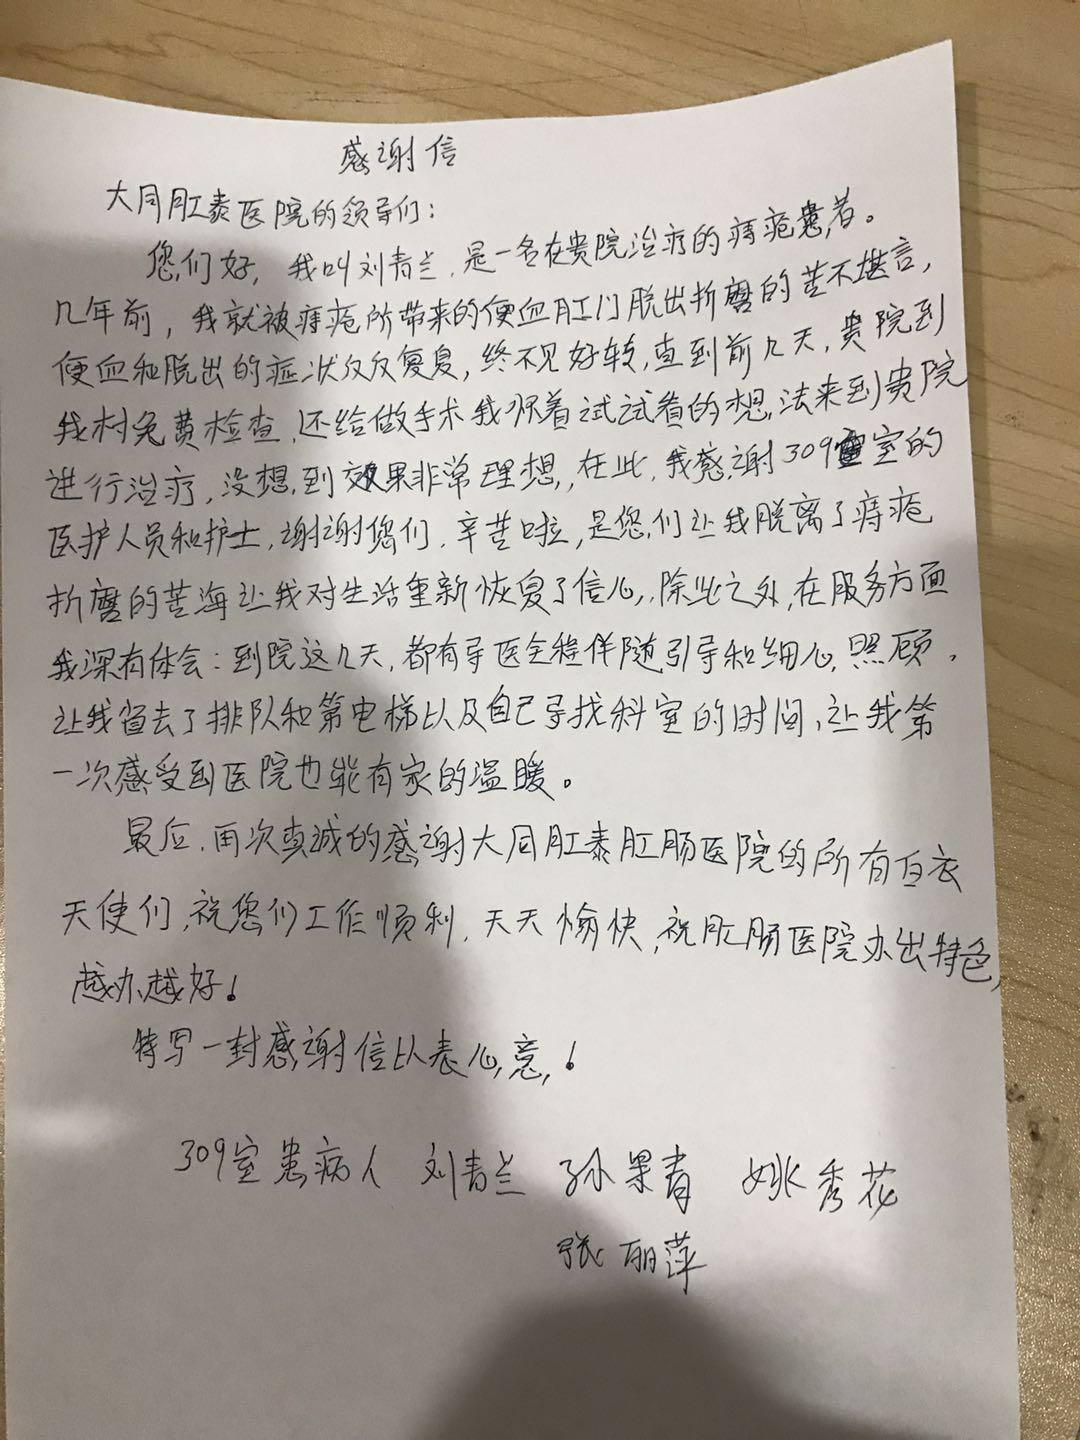 感谢信
大同肛泰医院的领导们：
您们好，我叫刘青兰，是一名在贵院治疗的痔疮患者。
几年前，我就被痔疮所带来的便血肛门脱出折磨的苦不堪言，
便血和脱出的症状反反复复，终不见好转，直到前几天，贵院到
我村免费检查，还给做手术我怀着试试看的想法来到贵院
进行治疗，没想到效果非常理想，在此，我感谢309室的
医护人员和护士，谢谢您们，辛苦啦，是您们让我脱离了痔疮
折磨的苦海让我对生活重新恢复了信心，除此之外，在服务方面
我深有体会：到院这几天，都有导医全程伴随引导和细心照顾，
让我省去了排队和等电梯以及自己寻找科室的时间，让我第
一次感受到医院也能有家的温暖。
最后，再次真诚的感谢大同肛泰肛肠医院的所有白衣
天使们，祝您们工作顺利，天天愉快，祝肛肠医院办出特色，
越办越好！
特写一封感谢信以表心意！
309室患病人 刘青兰 孙果青 姚秀花
张丽萍